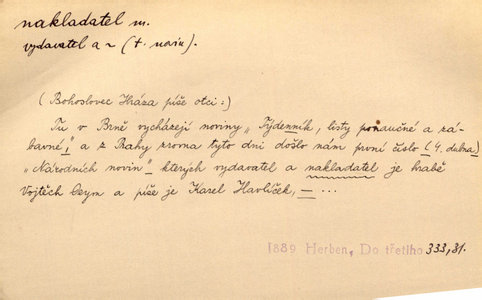 nakladatel m.
vydavatel a ~ (t. novin).
(Bohoslovec Hráza píše otci:)
Tu v Brně vycházejí noviny „Týdenník, listy ponaučné a zá-
bavné" a z Prahy zrovna tyto dni došlo nám první číslo (4. dubna)
„Národních novin" kterých vydavatel a nakladatel je hrabě
Vojtěch Deym a píše je Karel Havlíček, — ...
1889 Herben, Do třetího 333,31.